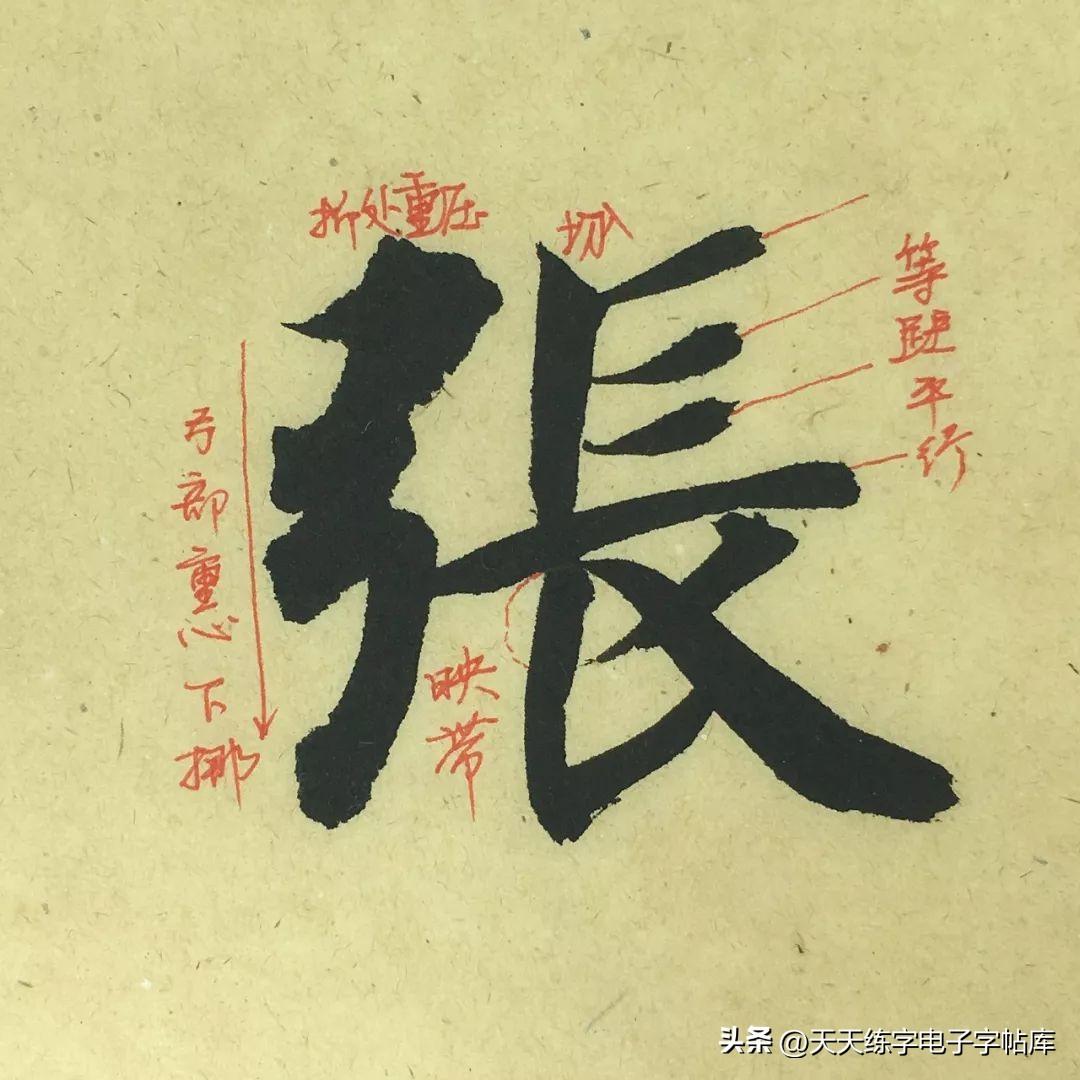 折处重压
切入
張
等距平行
弓部重心下挪
映带
头条 @天天练字电子字帖库